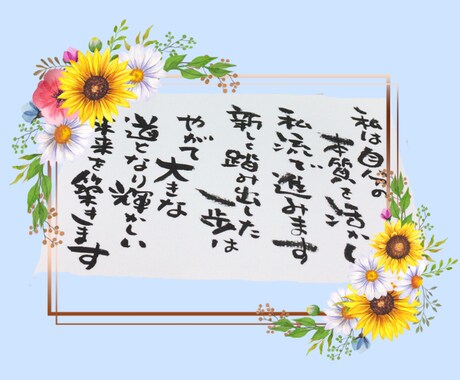 私は自分の
本質を活かし
私流で進みます
新しく踏み出した
一歩は
やがて大きな
道となり輝かしい
未来を築きます